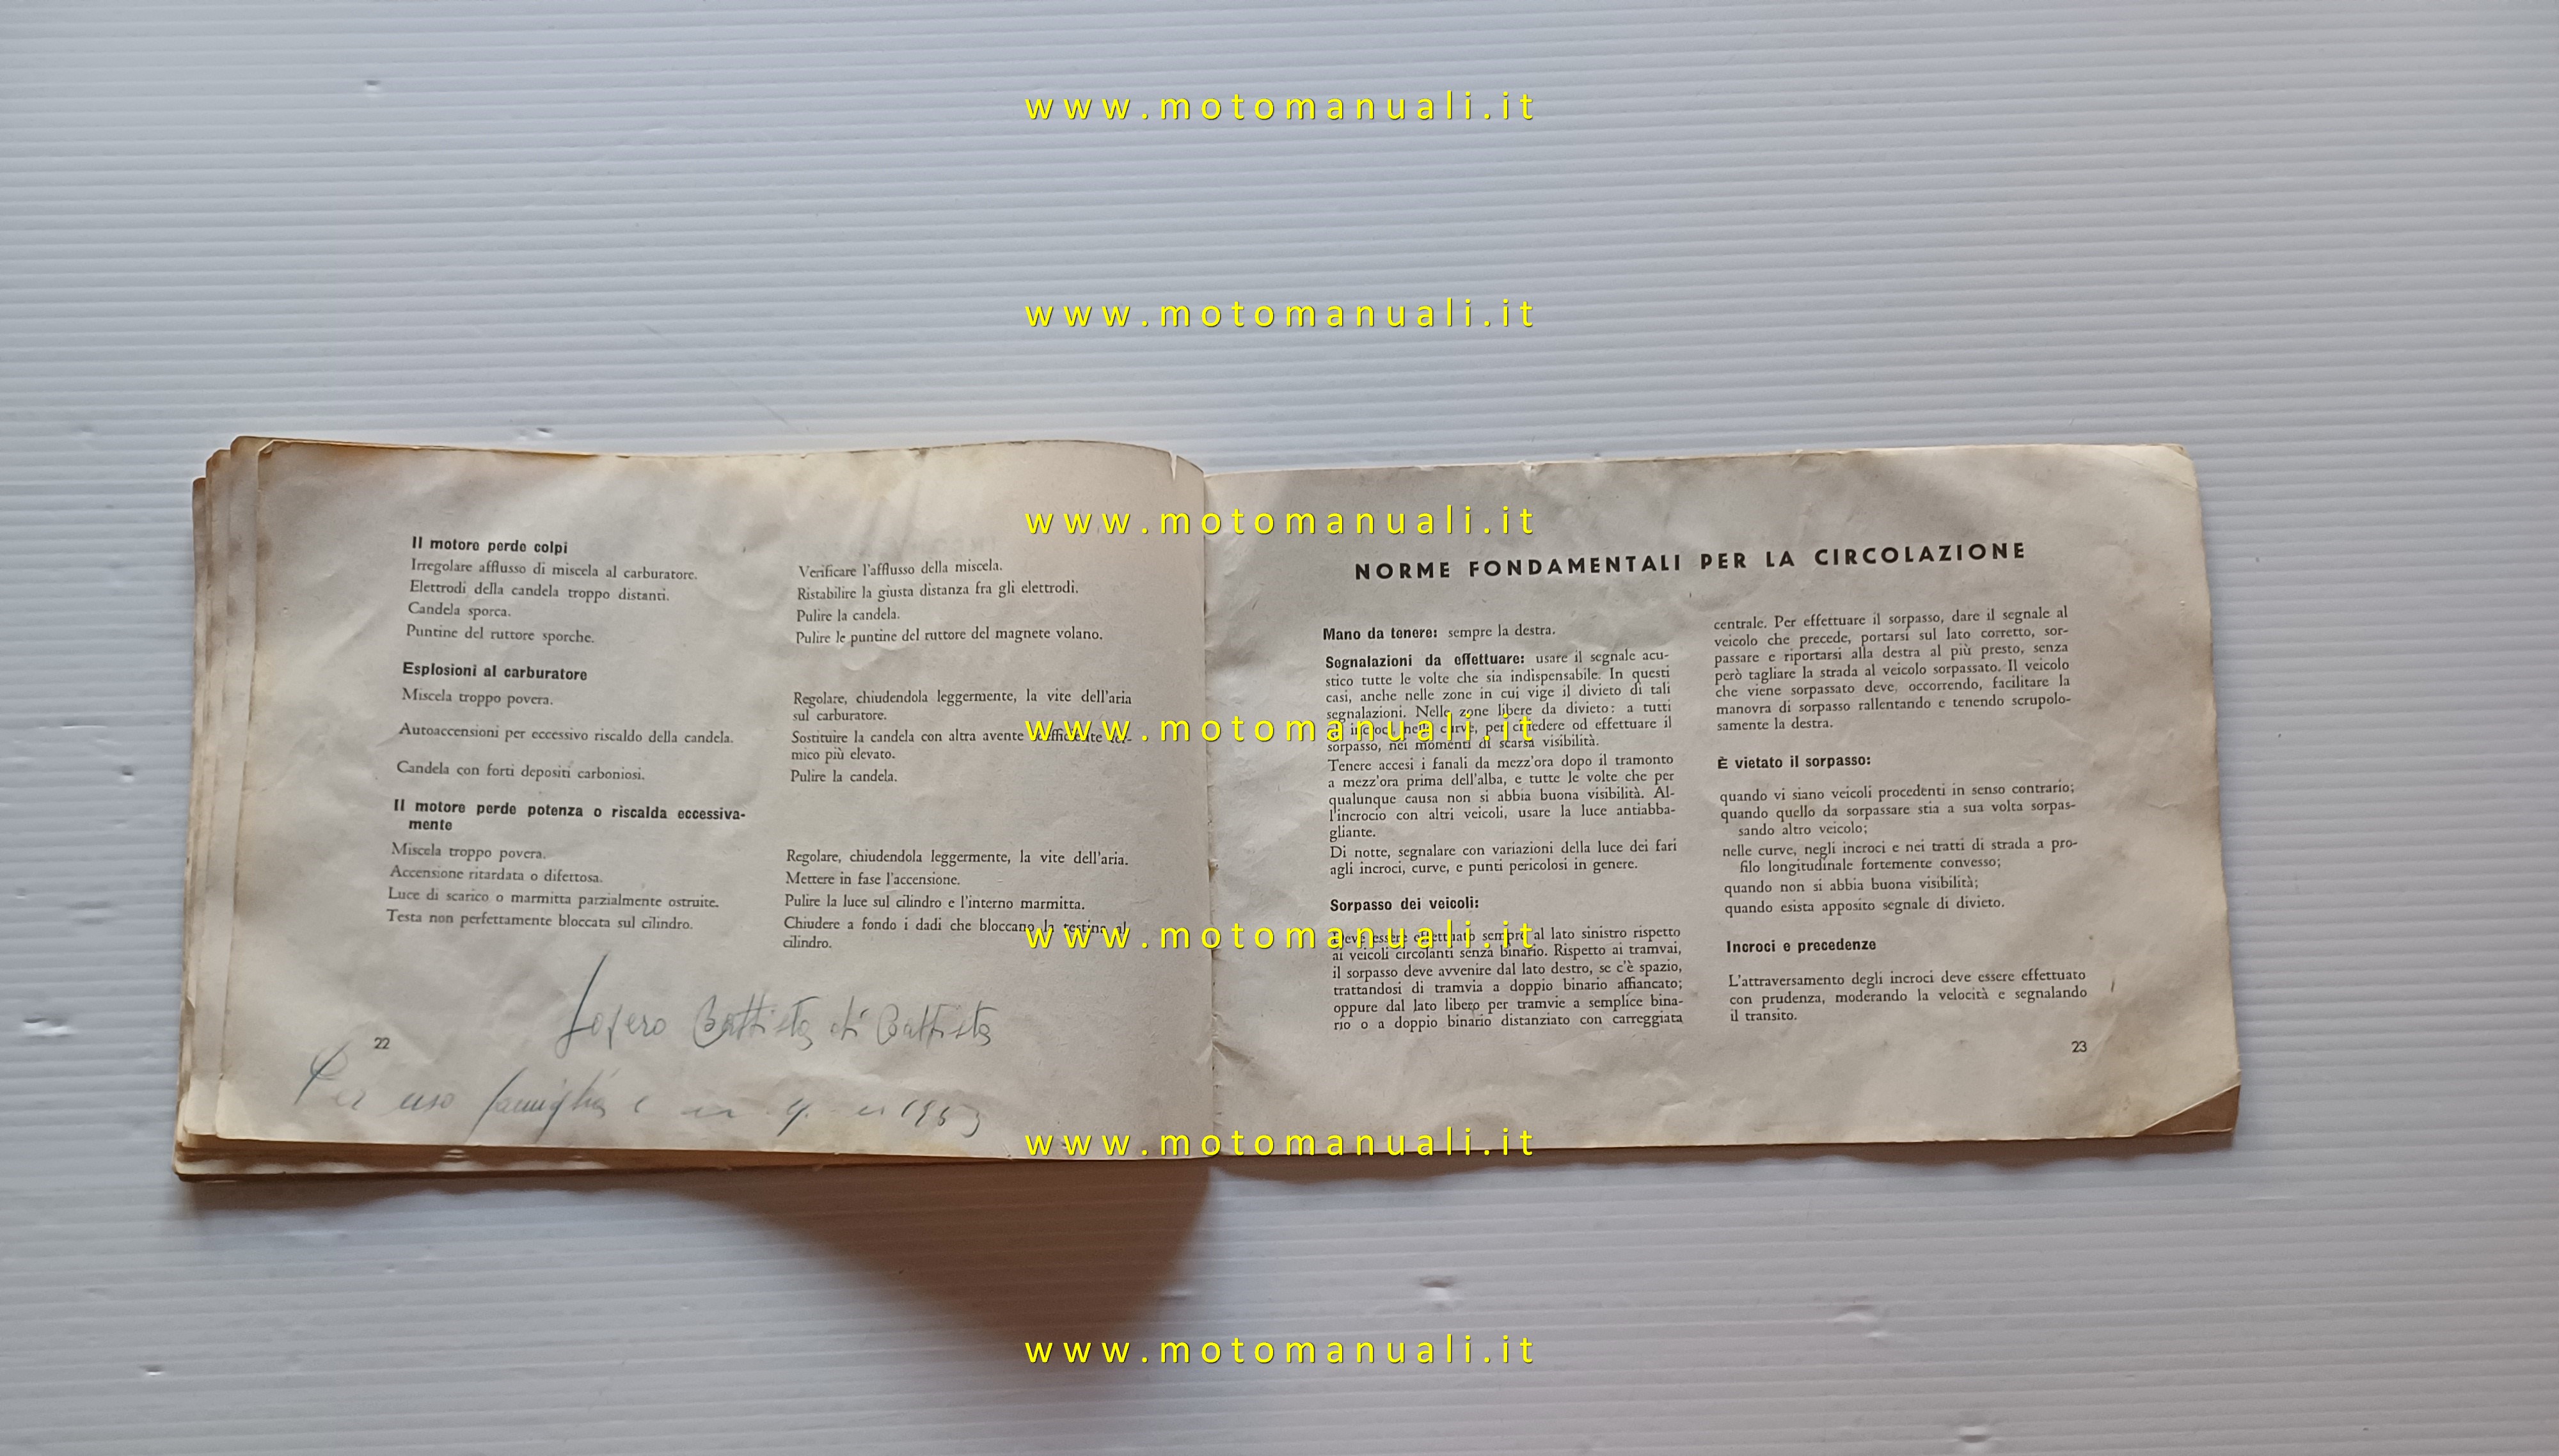 www.motomanuali.it
www.motomanuali.it
www.motomanuali.it
www.motomanuali.it
www.motomanuali.it
www.motomanuali.it
www.motomanuali.it
Il motore perde colpi
Irregolare afflusso di miscela al carburatore.
Verificare l'afflusso della miscela.
Elettrodi della candela troppo distanti.
Ristabilire la giusta distanza fra gli elettrodi.
Candela sporca.
Pulire la candela.
Puntine del ruttore sporche.
Pulire le puntine del ruttore del magnete volano.
Esplosioni al carburatore
Miscela troppo povera.
Regolare, chiudendola leggermente, la vite dell'aria
sul carburatore.
Autoaccensioni per eccessivo riscaldo della candela.
Sostituire la candela con altra avente
mico più elevato.
Candela con forti depositi carboniosi.
Pulire la candela.
Il motore perde potenza o riscalda eccessiva-
mente
Miscela troppo povera.
Regolare, chiudendola leggermente, la vite dell'aria.
Accensione ritardata o difettosa.
Mettere in fase l'accensione.
Luce di scarico o marmitta parzialmente ostruite.
Pulire la luce sul cilindro e l'interno marmitta.
Testa non perfettamente bloccata sul cilindro.
Chiudere a fondo i dadi che bloccano la testina al
cilindro.
Battista di Battista
22
Per uso famiglia
NORME FONDAMENTALI PER LA CIRCOLAZIONE
Mano da tenere: sempre la destra.
Segnalazioni da effettuare: usare il segnale acu-
stico tutte le volte che sia indispensabile. In questi
casi, anche nelle zone in cui vige il divieto di tali
segnalazioni. Nelle zone libere da divieto: a tutti
gli incroci, nelle curve, per chiedere od effettuare il
sorpasso, nei momenti di scarsa visibilità.
Tenere accesi i fanali da mezz'ora dopo il tramonto
a mezz'ora prima dell'alba, e tutte le volte che per
qualunque causa non si abbia buona visibilità. Al-
l'incrocio con altri veicoli, usare la luce antiabba-
gliante.
Di notte, segnalare con variazioni della luce dei fari
agli incroci, curve, e punti pericolosi in genere.
Sorpasso dei veicoli:
Deve essere effettuato sempre al lato sinistro rispetto
ai veicoli circolanti senza binario. Rispetto ai tramvai,
il sorpasso deve avvenire dal lato destro, se c'è spazio,
trattandosi di tramvia a doppio binario affiancato;
oppure dal lato libero per tramvie a semplice bina-
rio o a doppio binario distanziato con carreggiata
centrale. Per effettuare il sorpasso, dare il segnale al
veicolo che precede, portarsi sul lato corretto, sor-
passare e riportarsi alla destra al più presto, senza
però tagliare la strada al veicolo sorpassato. Il veicolo
che viene sorpassato deve, occorrendo, facilitare la
manovra di sorpasso rallentando e tenendo scrupolo-
samente la destra.
È vietato il sorpasso:
quando vi siano veicoli procedenti in senso contrario;
quando quello da sorpassare stia a sua volta sorpas-
sando altro veicolo;
nelle curve, negli incroci e nei tratti di strada a pro-
filo longitudinale fortemente convesso;
quando non si abbia buona visibilità;
quando esista apposito segnale di divieto.
Incroci e precedenze
L'attraversamento degli incroci deve essere effettuato
con prudenza, moderando la velocità e segnalando
il transito.
23